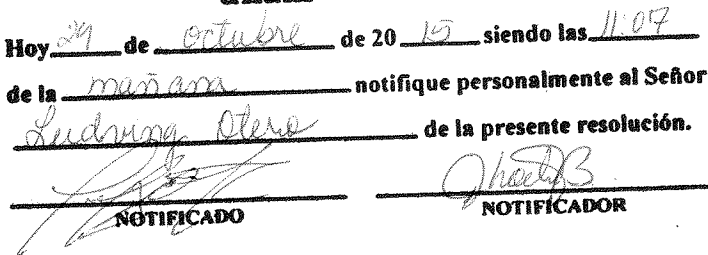 Hoy 29 de octubre de 20 15 siendo las 11:07
de la mañana notifique personalmente al Señor
Ludwing Otero de la presente resolución.
NOTIFICADO NOTIFICADOR